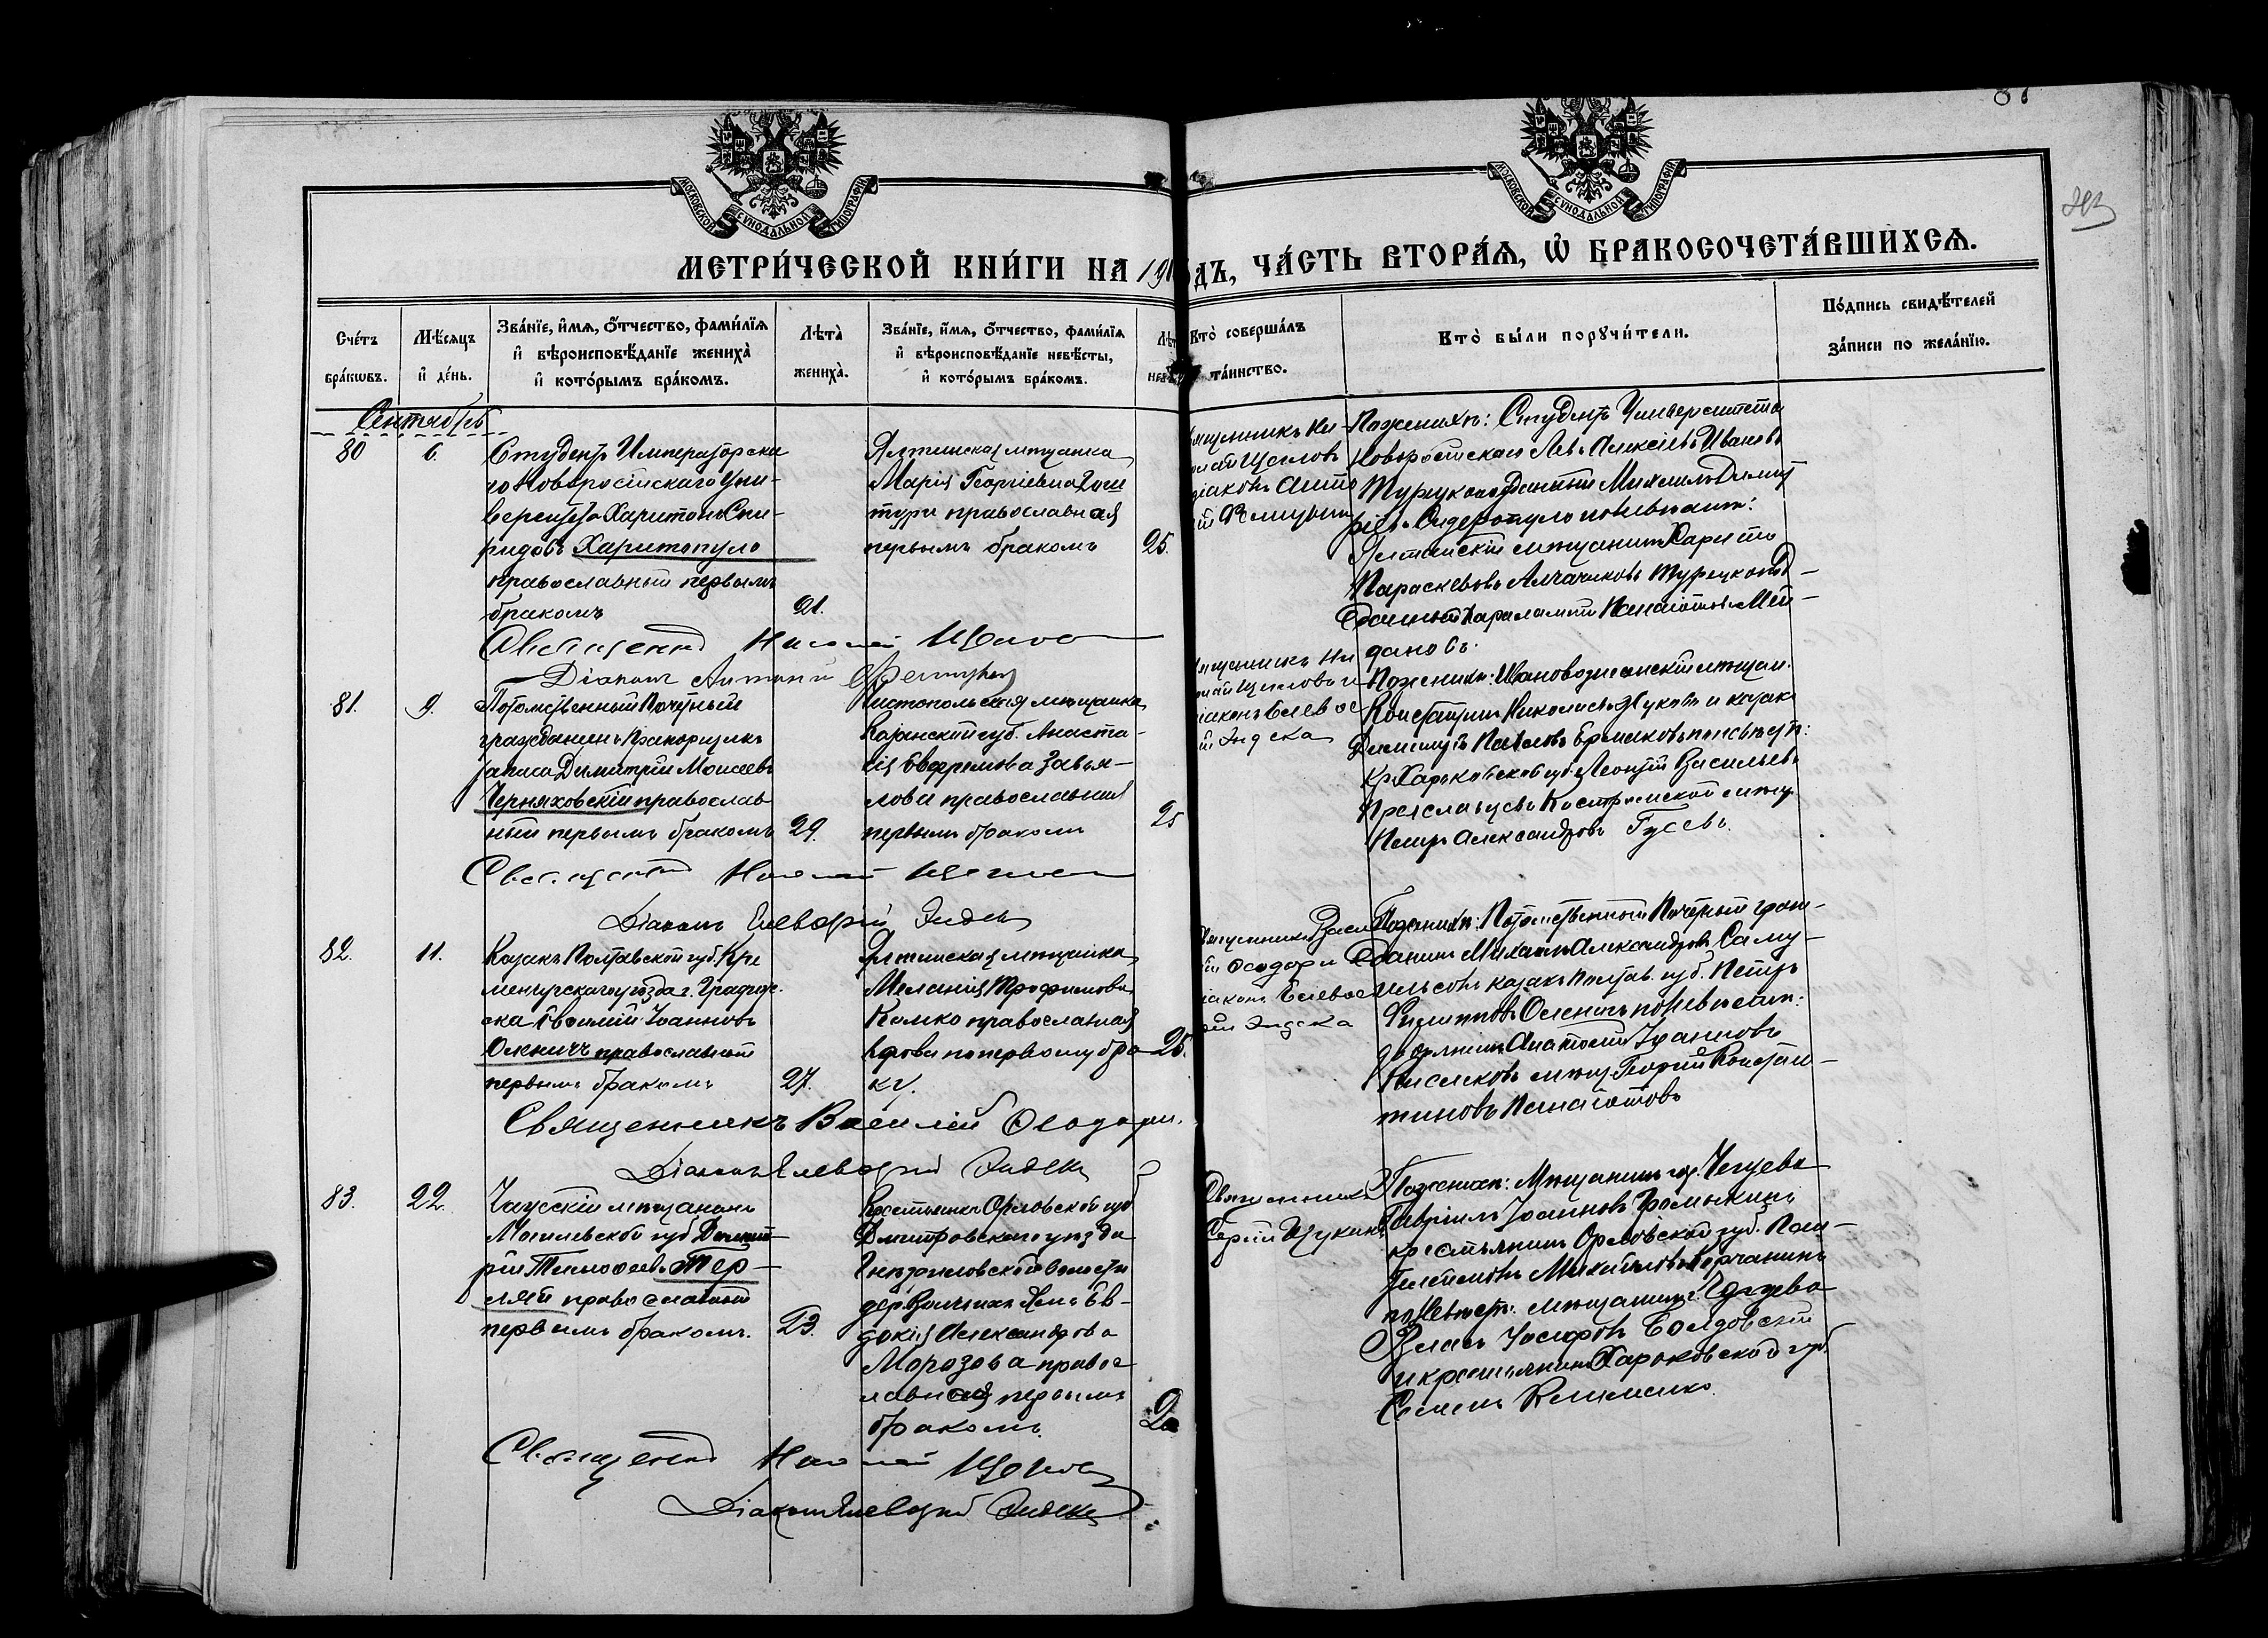 МОСКОВСКОЙ СУНОДАЛЬНОЙ ТИПОГРАФІИ
МОСКОВСКОЙ СУНОДАЛЬНОЙ ТИПОГРАФІИ
МЕТРИ́ЧЕСКОЙ КНИ́ГИ НА 191 ДЪ, ЧА́СТЬ ВТОРА́Я, Ѽ БРАКОСОЧЕТА́ВШИХСЯ.
Сче́тъ бра́кѡвъ.
Мѣ́сяцъ и҆ де́нь.
Зва́нїе, и҆́мя, ѻ҆́тчество, фами́лїя
и҆ вѣроисповѣ́данїе жениха̀
и҆ кото́рымъ бра́комъ.
Лѣта̀ жениха̀.
Зва́нїе, и҆́мя, ѻ҆́тчество, фами́лїя
и҆ вѣроисповѣ́данїе невѣ́сты,
и҆ кото́рымъ бра́комъ.
Кто̀ соверша́лъ та́инство.
Кто̀ бы́ли порꙋчи́тели.
По́дпись свидѣ́телей
за́писи по жела́нїю.
Сентябрь
80
6.
Студентъ Императорска
го Новоросійскаго Уни-
верситета Харитонъ Спи-
ридовъ Харитопуло
православный первымъ
бракомъ
21.
Ялтинская мѣщанка
Марія Георгіевна
православная
первымъ бракомъ
25.
По женихѣ: Студентъ Университета
Новоросійскаго Левъ Алексѣевъ Ивановъ
Турецкоподданный Михаилъ Димит
ріевъ Сидеропуло по невѣстѣ:
Ялтинскій мѣщанинъ Харито
Параскевовъ Турецкопод-
данный Харалампій Панаіотовъ Мей-
дановъ.
Священникъ Николай Щегловъ
Діаконъ Антоній
81.
9.
Потомственный Почетный
гражданинъ Прапорщикъ
запаса Димитрій Моисеевъ
Черняховскій православ
ный первымъ бракомъ
29.
Чистопольская мѣщанка
Казанской губ. Анаста-
сія Евфремова Завья-
лова православная
первымъ бракомъ
25
По женихѣ: Ивановознесенскій мѣщан.
Константинъ Николаевъ Жуковъ и казакъ
Димитрій Павловъ Ермаковъ по невѣстѣ:
Кр. Харьковской губ. Леонтій Васильевъ
Костромской мѣщ.
Петръ Александровъ Гусевъ.
Священникъ Николай Щегловъ
Діаконъ Елевферій Эндека
82.
11.
Казакъ Полтавской губ. Кре
менчугскаго уѣзда г. Градиж
ска Василій Іоанновъ
Олѣничъ православный
первымъ бракомъ
27.
Ялтинская мѣщанка
Меланія Трофимова
Калко православная
вдова по первому бра-
ку.
25.
По женихѣ: Потомственный Почетный граж-
данинъ Михаилъ Александровъ Саму-
ильсонъ казакъ Полтав. губ. Петръ
Филипповъ Олѣничъ по невѣстѣ:
дворянинъ Анатолій Іоанновъ
Киселевъ мѣщ. Георгій Констан-
тиновъ Панаіотовъ
Священникъ Василій Ѳеодори.
Діаконъ Елевферій Эндека
83.
22.
Чаусскій мѣщанинъ
Могилевской губ. Димит-
рій Тимофеевъ Тер-
лей православный
первымъ бракомъ.
23.
Крестьянка Орловской губ
Дмитровскаго уѣзда
волости
дер. Ев-
докія Александрова
Морозова правос
лавная первымъ
бракомъ.
Священникъ
Сергій Щукинъ
По женихѣ: Мѣщанинъ гор. Чугуева
Гавріилъ Іоанновъ Фомыкинъ
крестьянинъ Орловской губ. Пан-
телѣмонъ Михайловъ Корчагинъ
по невѣстѣ: мѣщанинъ г.
Власъ Іосифовъ
и крестьянинъ Харьковской губ.
Семенъ Клименко.
Священникъ Николай Щегловъ
Діаконъ Елевферій Эндека